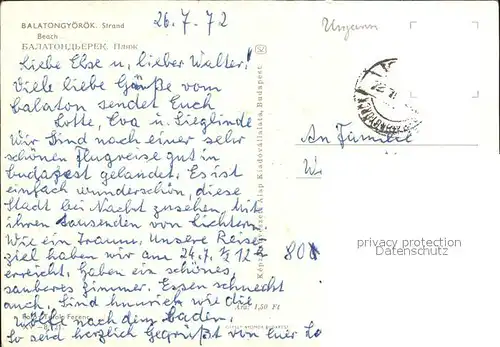 26.7.72
Ungarn
BALATONGYÖRÖK. Strand
Beach
БАЛАТОНДЬЕРЕК. Пляж
Liebe Else u, lieber Walter!
Viele liebe Grüße vom
Balaton sendet Euch
Lotte, Eva u. Sieglinde
Wir sind nach einer sehr
schönen Flugreise gut in
Budapest gelandet. Es ist
einfach wunderschön, diese
Stadt bei Nacht zusehen. Mit
ihren tausenden von Lichtern
Wie ein Traum. Unsere Reise
ziel haben wir am 24.7. 12
erreicht. Haben ein schönes,
sauberes Zimmer. Essen schmeckt
auch. Sind hungrig wie die
Wölfe nach dem Baden.
So seid herzlich Gegrüßt von Eurer Lo
An Familie
W
80
Képzőművészeti Alap Kiadóvállalata, Budapest
Ára: 1,50 Ft
Ferenc
privacy protection
Datenschutz